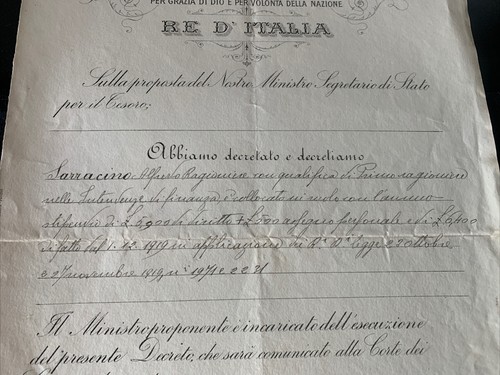 PER GRAZIA DI DIO E PER VOLONTÀ DELLA NAZIONE
RE D'ITALIA
Sulla proposta del Nostro Ministro Segretario di Stato
per il Tesoro;
Abbiamo decretato e decretiamo
Sarracino Alfredo Ragioniere con qualifica di Primo ragioniere
nelle Intendenze di finanza, è collocato in ruolo con l'annuo
stipendio di L. 5,900 di diritto + L. 500 assegno personale e di L. 6,400
di fatto dal 1. 12 1919 in applicazione dei R. D. legge 22 Ottobre
e 27 novembre 1919, nⁱ 1971 e 2231
Il Ministro proponente è incaricato dell'esecuzione
del presente Decreto, che sarà comunicato alla Corte dei